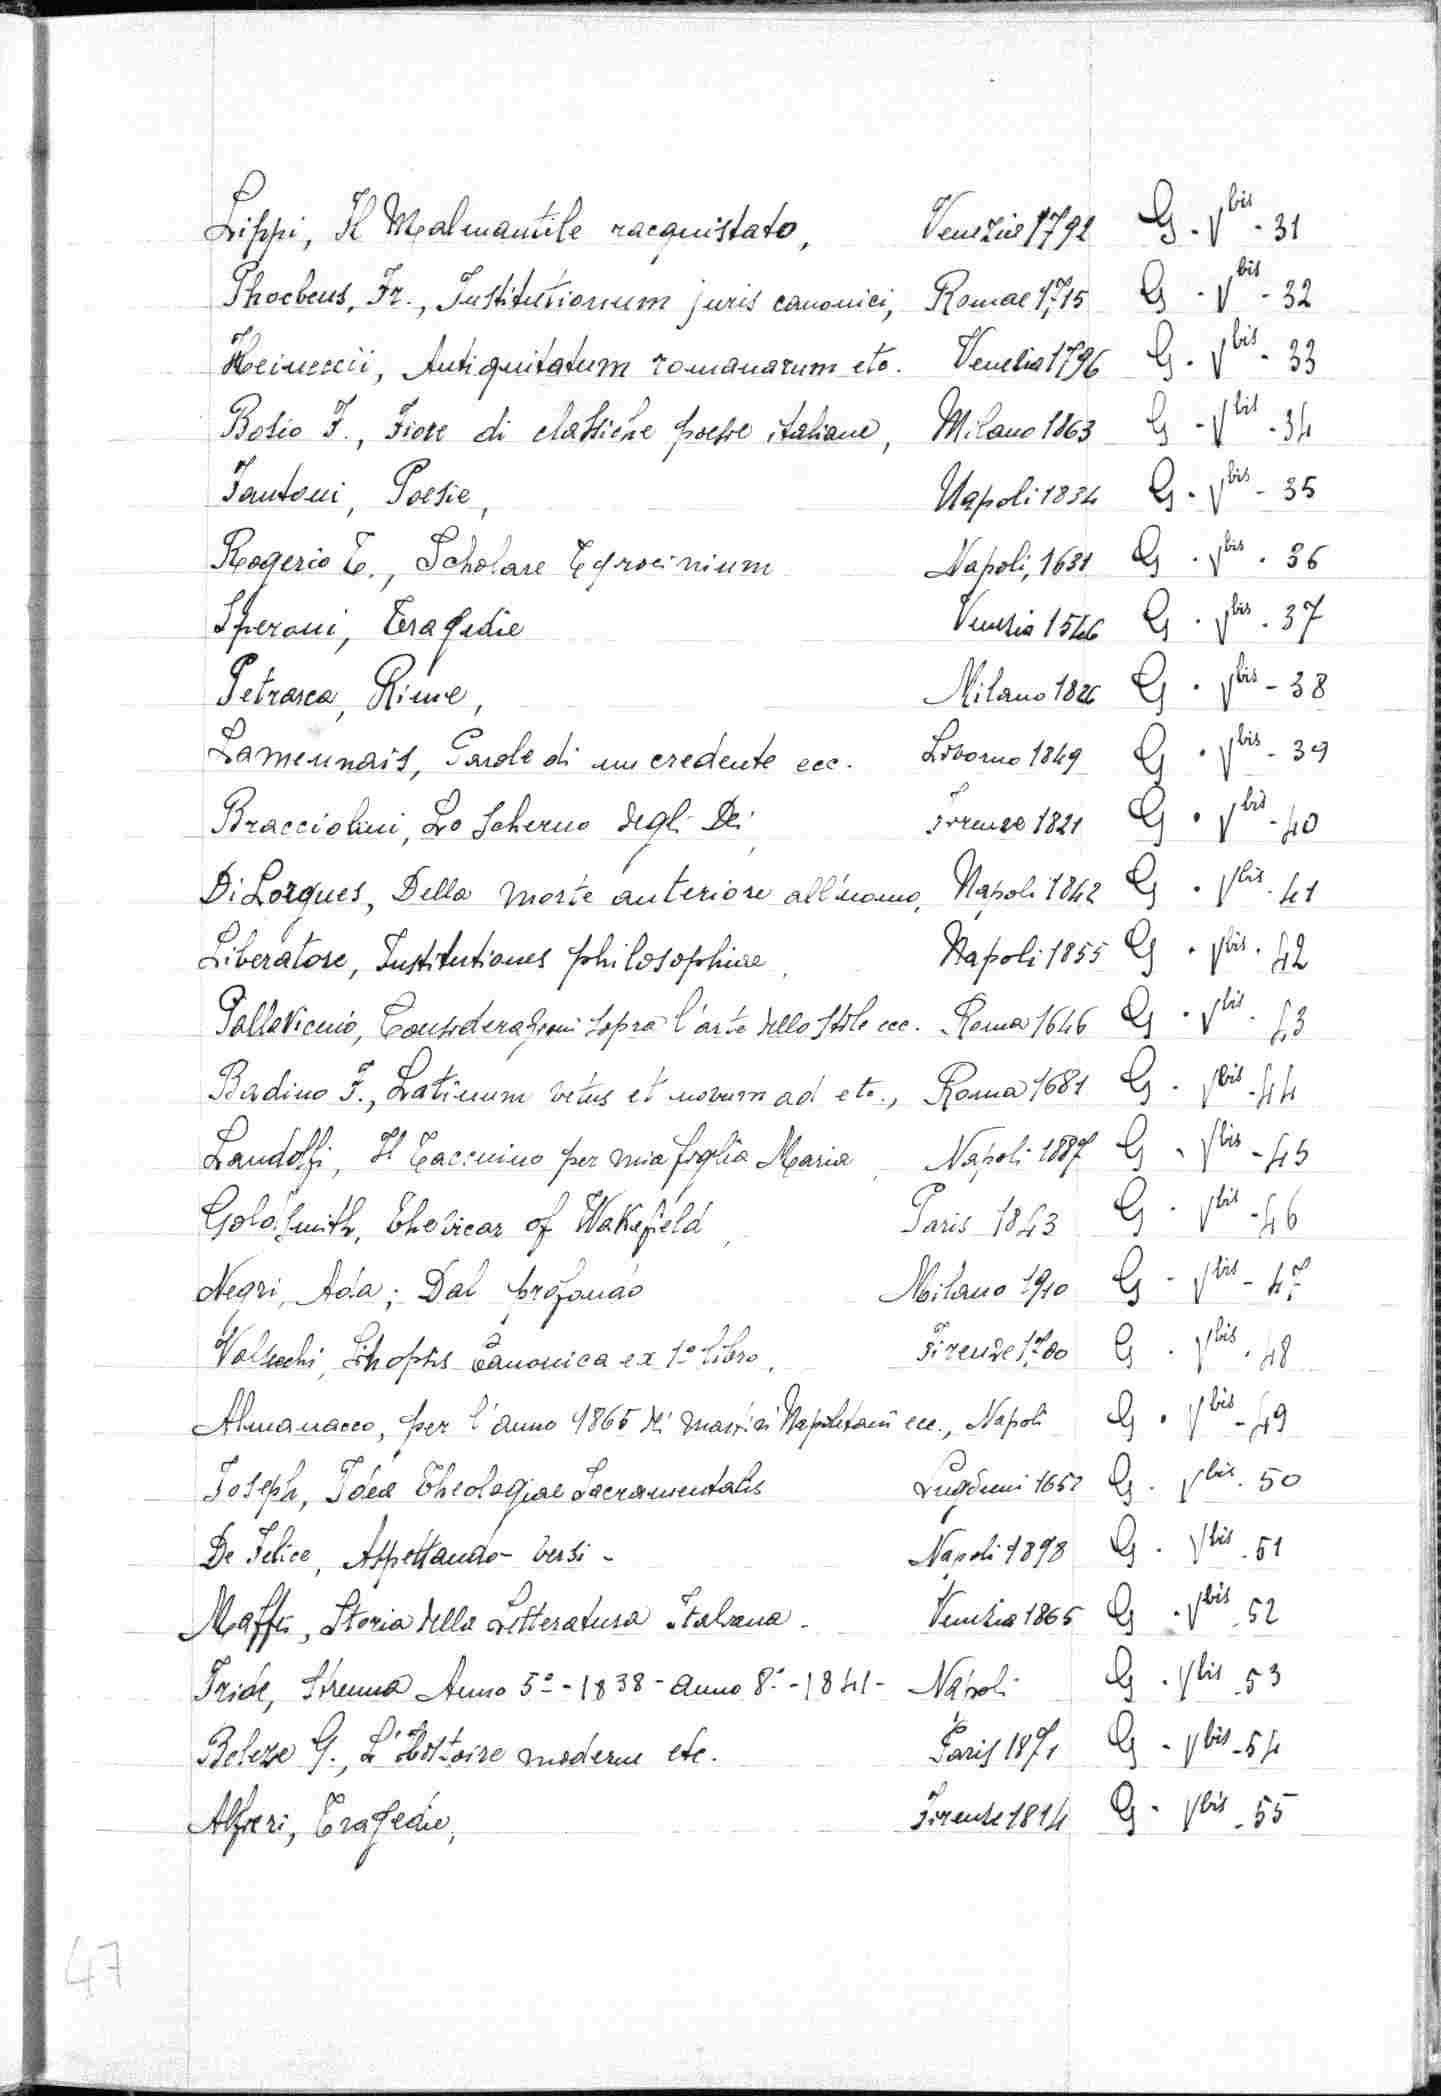 Lippi, Il Malmantile racquistato, Venezia 1792 G - V bis - 31
Phoebeus, Fr., Institutionum juris canonici, Romae 1715 G - V bis - 32
Heineccii, Antiquitatum romanarum etc. Venezia 1796 G - V bis - 33
Bosio F., Fiore di classiche poesie italiane, Milano 1863 G - V bis - 34
Fantoni, Poesie, Napoli 1834 G - V bis - 35
Rogerio T., Scholare Napoli, 1631 G - V bis - 36
Speroni, Tragedie Venezia 1546 G - V bis - 37
Petrarca, Rime, Milano 1826 G - V bis - 38
Lamennais, Parole di un credente ecc. Livorno 1849 G - V bis - 39
Bracciolini, Lo Scherno degli Dei, Firenze 1821 G - V bis - 40
Di Lorgues, Della morte anteriore all'uomo, Napoli 1842 G - V bis - 41
Liberatore, Institutiones philosophiae, Napoli 1855 G - V bis - 42
Pallavicino, Considerazioni sopra l'arte dello stile ecc. Roma 1646 G - V bis - 43
Badino F., Latinum vetus et novum ad etc., Roma 1681 G - V bis - 44
Landolfi, Il Taccuino per mia figlia Maria, Napoli 1887 G - V bis - 45
Goldsmith, The vicar of Wakefield, Paris 1843 G - V bis - 46
Negri, Ada; Dal profondo Milano 1910 G - V bis - 47
Valsecchi, Sinopsis Canonica ex 1º libro, Firenze 1780 G - V bis - 48
Almanacco, per l'anno 1865 dei Napoletani ecc., Napoli G - V bis - 49
Joseph, Idea Theologiae Sacramentalis Lugduni 1652 G - V bis - 50
De Felice, Aspettando - versi - Napoli 1898 G - V bis - 51
Maffei, Storia della Letteratura Italiana - Venezia 1865 G - V bis - 52
Iride, Strenna Anno 5º - 1838 - anno 8º - 1841 - Napoli G - V bis - 53
Beleze G., L'histoire moderne etc. Paris 1871 G - V bis - 54
Alfieri, Tragedie, Firenze 1814 G - V bis - 55
47